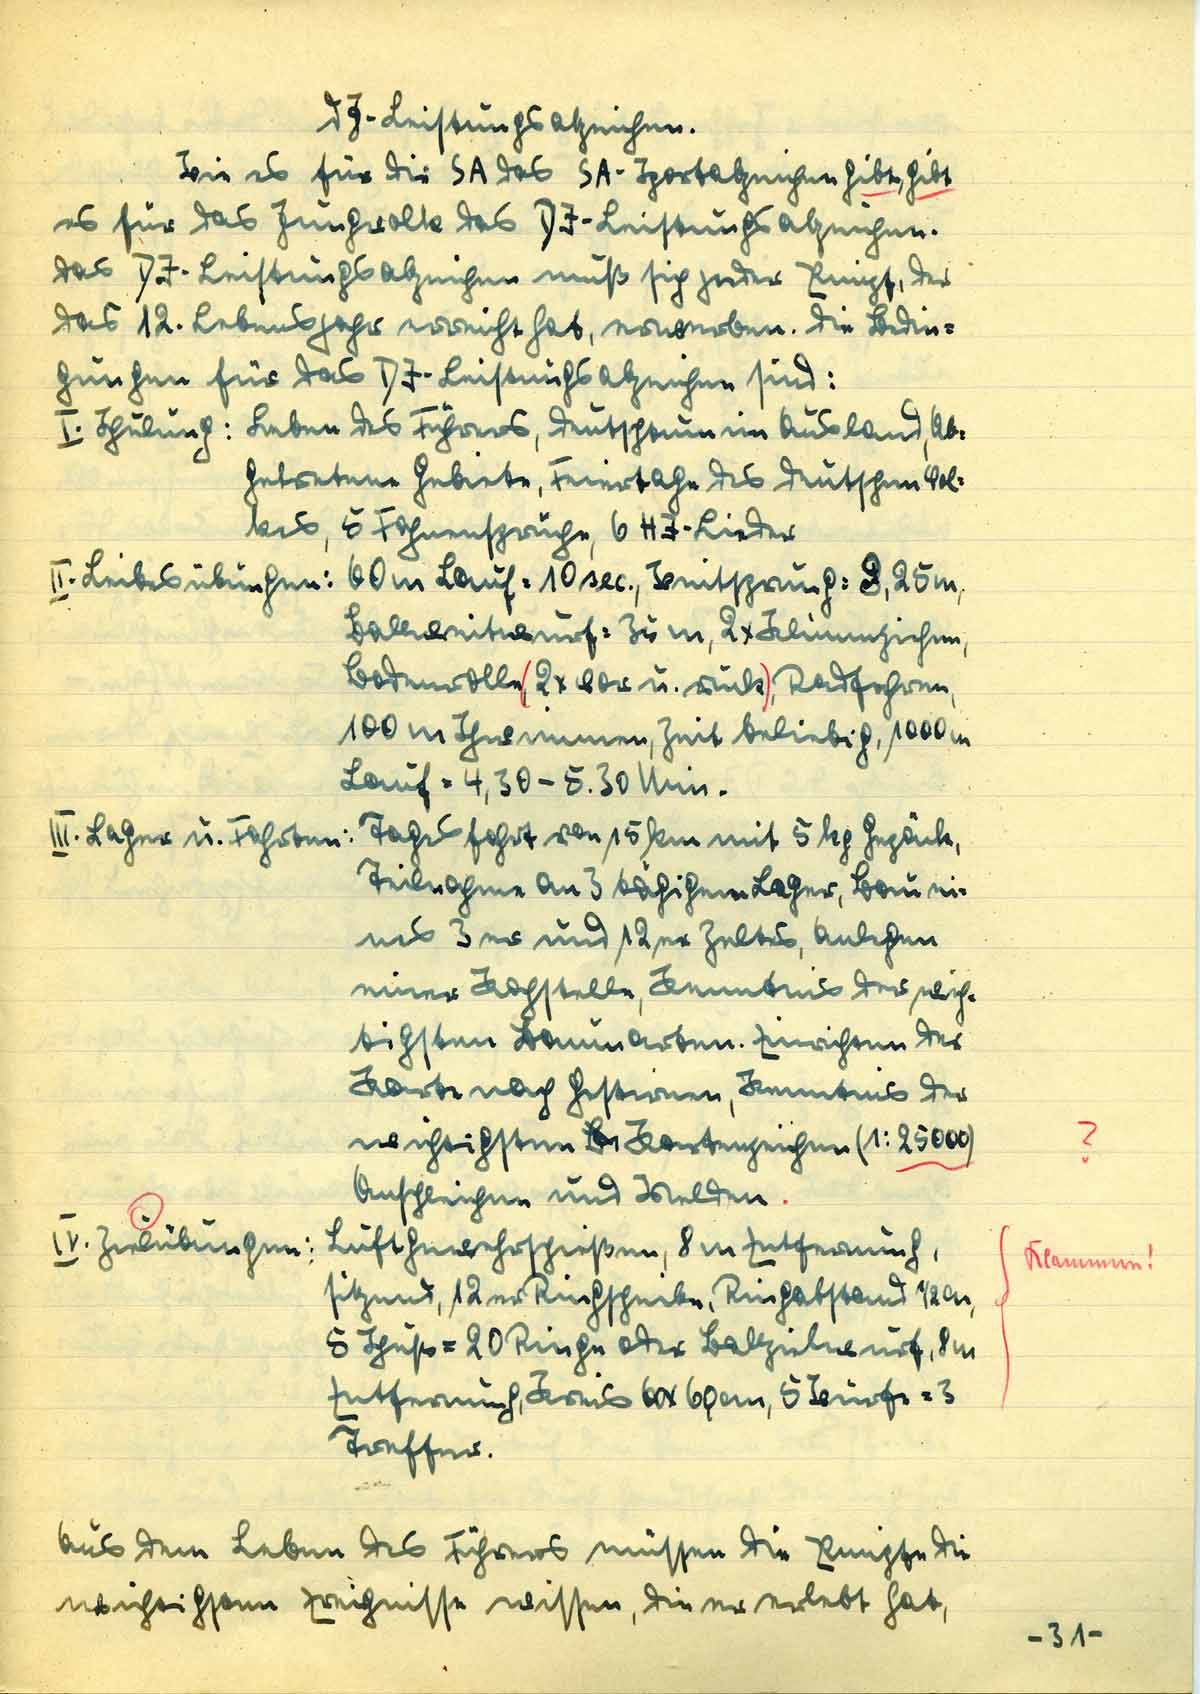 DJ-Leistungsabzeichen.
Wie es für die SA das SA-Sportabzeichen gibt, gibt
es für das Jungvolk das DJ-Leistungsabzeichen.
Das DJ-Leistungsabzeichen muß sich jeder Pimpf, der
das 12. Lebensjahr erreicht hat, erwerben. Die Bedin=
gungen für das DJ-Leistungsabzeichen sind:
I. Schulung: Leben des Führers, Deutschtum im Ausland, Ab=
getretene Gebiete, Feiertage des deutschen Vol=
kes, 5 Fahnensprüche, 6 HJ-Lieder
II. Leibesübungen: 60 m Lauf = 10 sec., Weitsprung = 3,25 m,
Ballweitwurf = 35 m, 2x Klimmziehen,
Bodenrolle (2x vor u. rück), Radfahren,
100 m Schwimmen, Zeit beliebig, 1000 m
Lauf = 4,30 – 5.30 Min.
III. Lager u. Fahrten: Tagesfahrt von 15 km mit 5 kg Gepäck,
Teilnahme an 3 tägigem Lager, Bau ei=
nes 3er und 12er Zeltes, Anlegen
einer Kochstelle, Kenntnis der wich=
tigsten Baumarten. Einrichten der
Karte nach Gestirnen, Kenntnis der
wichtigsten Kartenzeichen (1:25000) ?
Anschleichen und Melden.
IV. Zielübungen: Luftgewehrschießen, 8 m Entfernung,
Klammern!
sitzend, 12er Ringscheibe, Ringabstand 1/2 cm,
5 Schuß = 20 Ringe oder Ballzielwurf, 8 m
Entfernung, Kreis 60x60 cm, 5 Würfe = 3
Treffer.
Aus dem Leben des Führers müssen die Pimpfe die
wichtigsten Ereignisse wissen, die er erlebt hat,
-31-